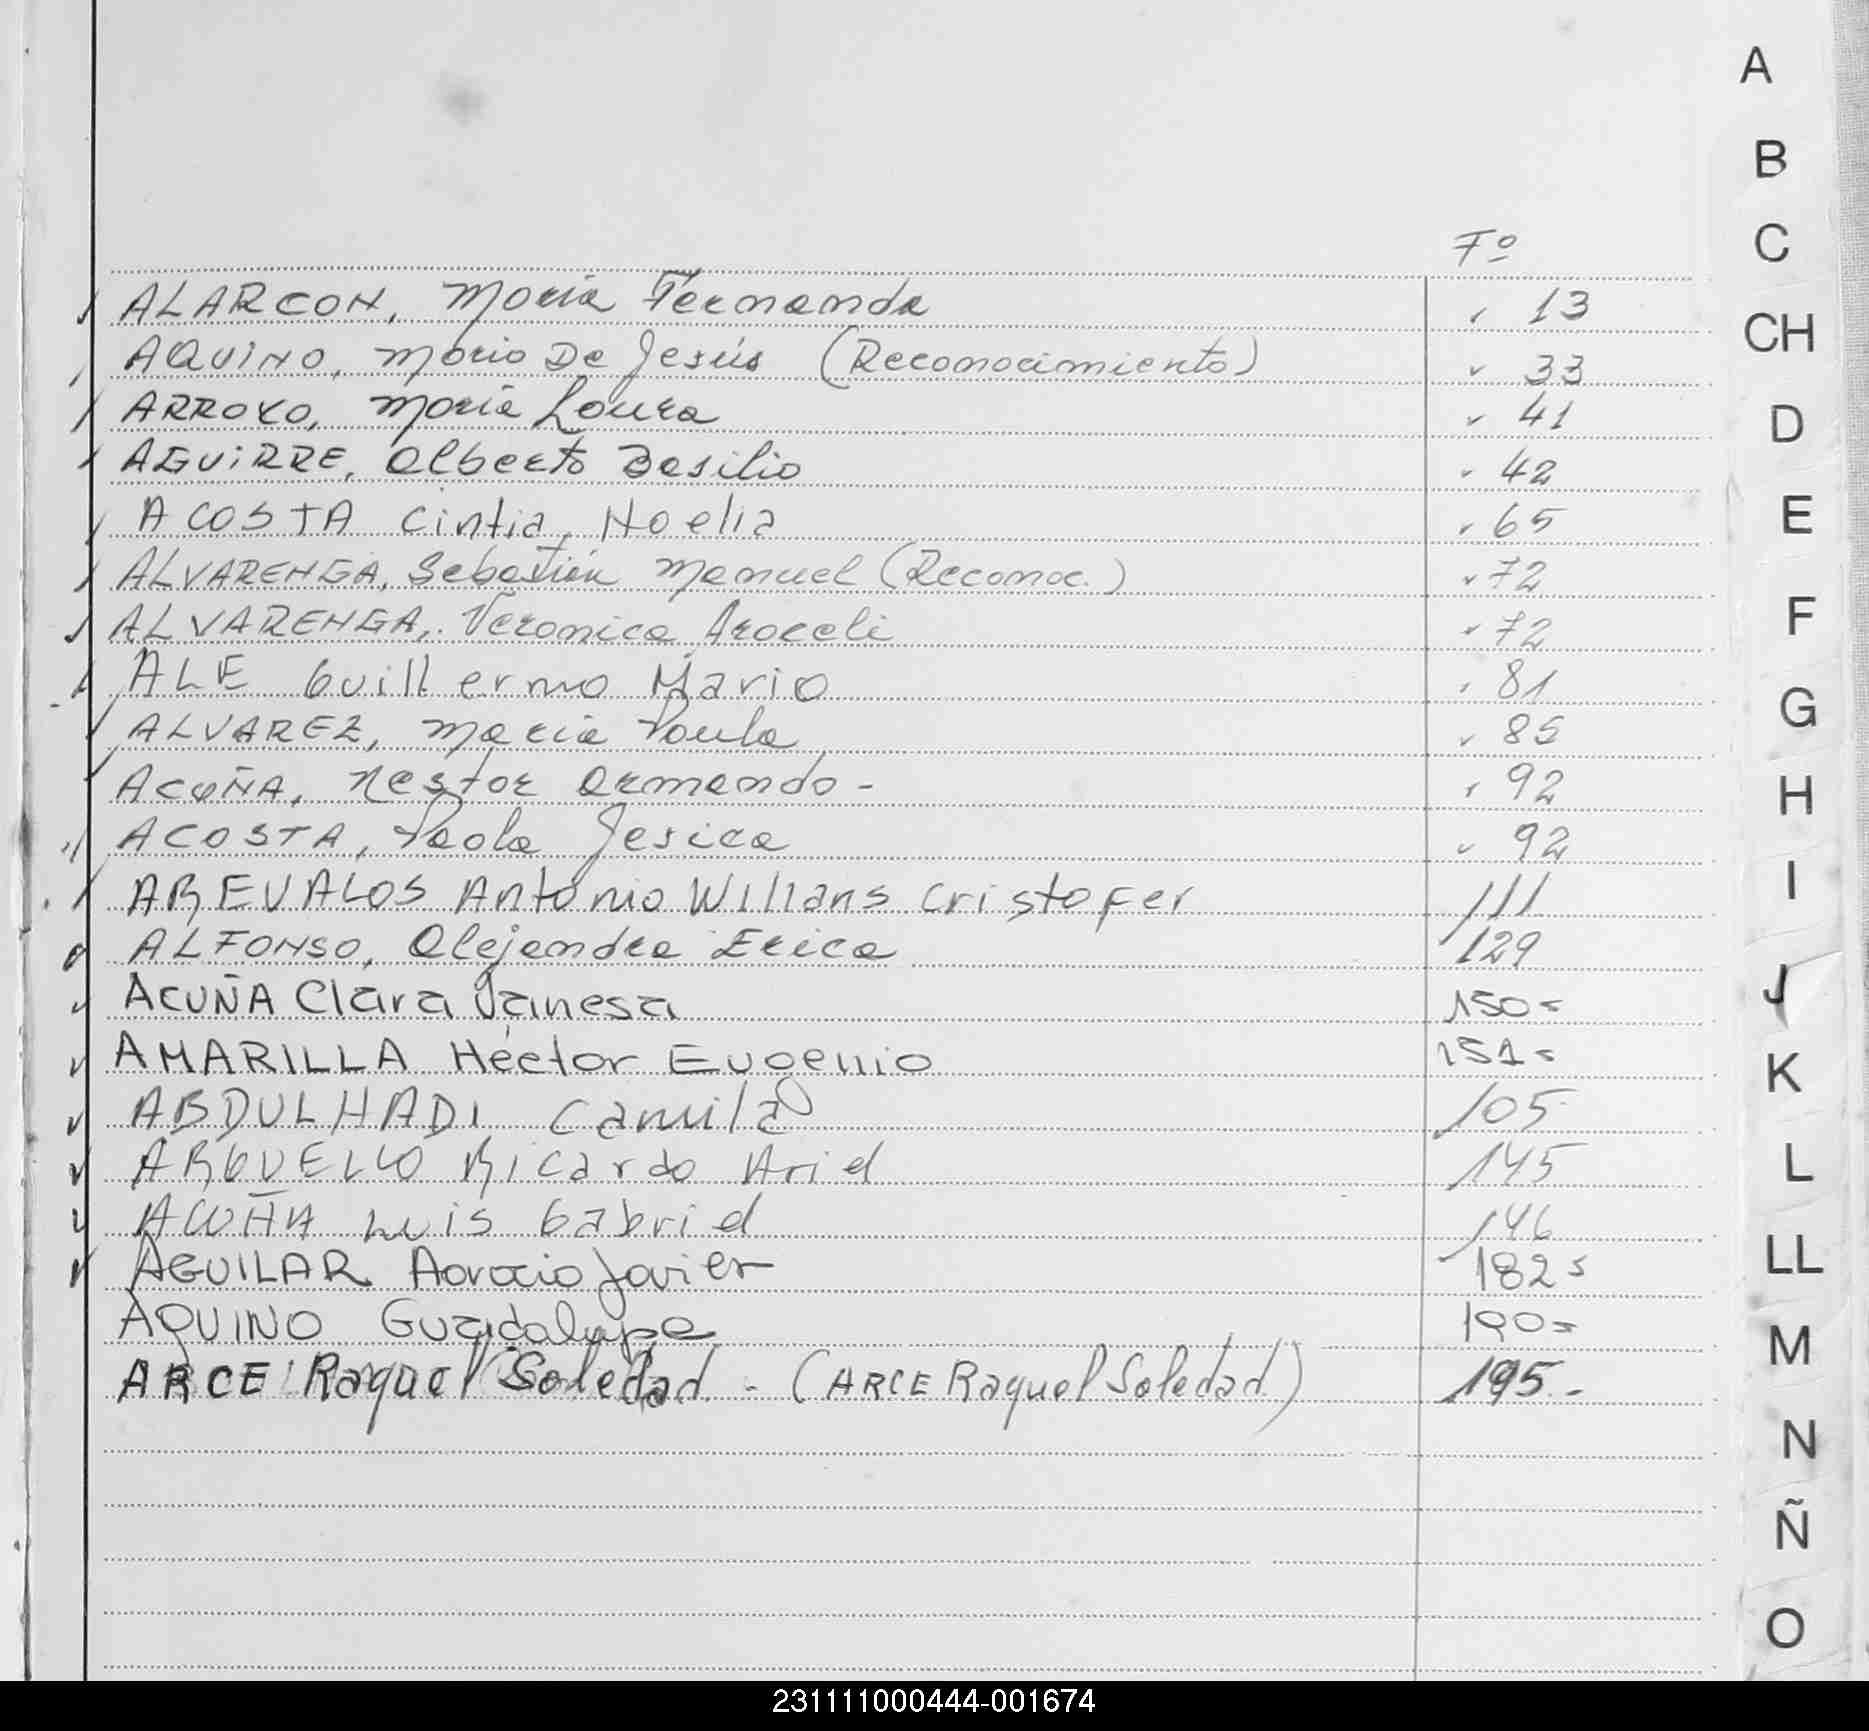 Fº
ALARCON, María Fernanda 13
AQUINO, Mario De Jesús (Reconocimiento) 33
ARROYO, María Laura 41
AGUIRRE, Alberto Basilio 42
ACOSTA Cintia Noelia 65
ALVARENGA, Sebastián Manuel (Reconoc.) 72
ALVARENGA, Veronica Araceli 72
ALE Guillermo Mario 81
ALVAREZ, María Paula 85
ACUÑA, Nestor Armando - 92
ACOSTA, Paola Jesica 92
AREVALOS Antonio Willians Cristofer 111
ALFONSO, Alejandra Erica 129
ACUÑA Clara Vanesa 150-
AMARILLA Héctor Eugenio 151-
ABDULHADI Camila 105
ARGUELLO Ricardo Ariel 145
ACUÑA Luis Gabriel 146
AGUILAR Horacio Javier 182-
AQUINO Guadalupe 190-
ARCE Raquel Soledad - (ARCE Raquel Soledad) 195-
A
B
C
CH
D
E
F
G
H
I
J
K
L
LL
M
N
Ñ
O
231111000444-001674